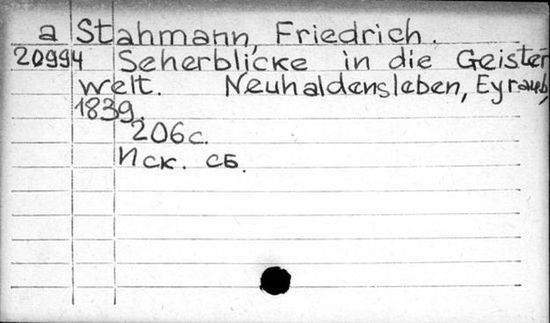 a Stahmann, Friedrich.
20994 Seherblicke in die Geister
welt. Neuhaldensleben, Eyraub,
1839.
206с.
Иск. сб.